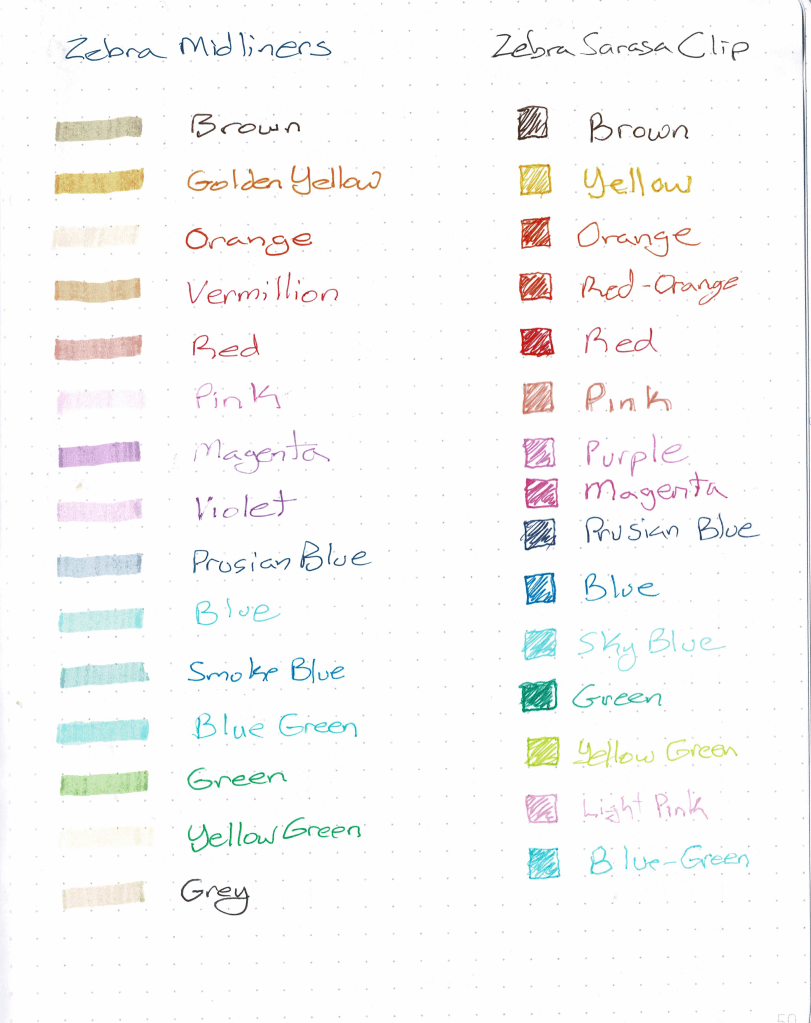 Zebra Midliners
Brown
Golden Yellow
Orange
Vermillion
Red
Pink
Magenta
Violet
Prusian Blue
Blue
Smoke Blue
Blue Green
Green
Yellow Green
Grey
Zebra Sarasa Clip
Brown
Yellow
Orange
Red-Orange
Red
Pink
Purple
Magenta
Prusian Blue
Blue
Sky Blue
Green
Yellow Green
Light Pink
Blue-Green